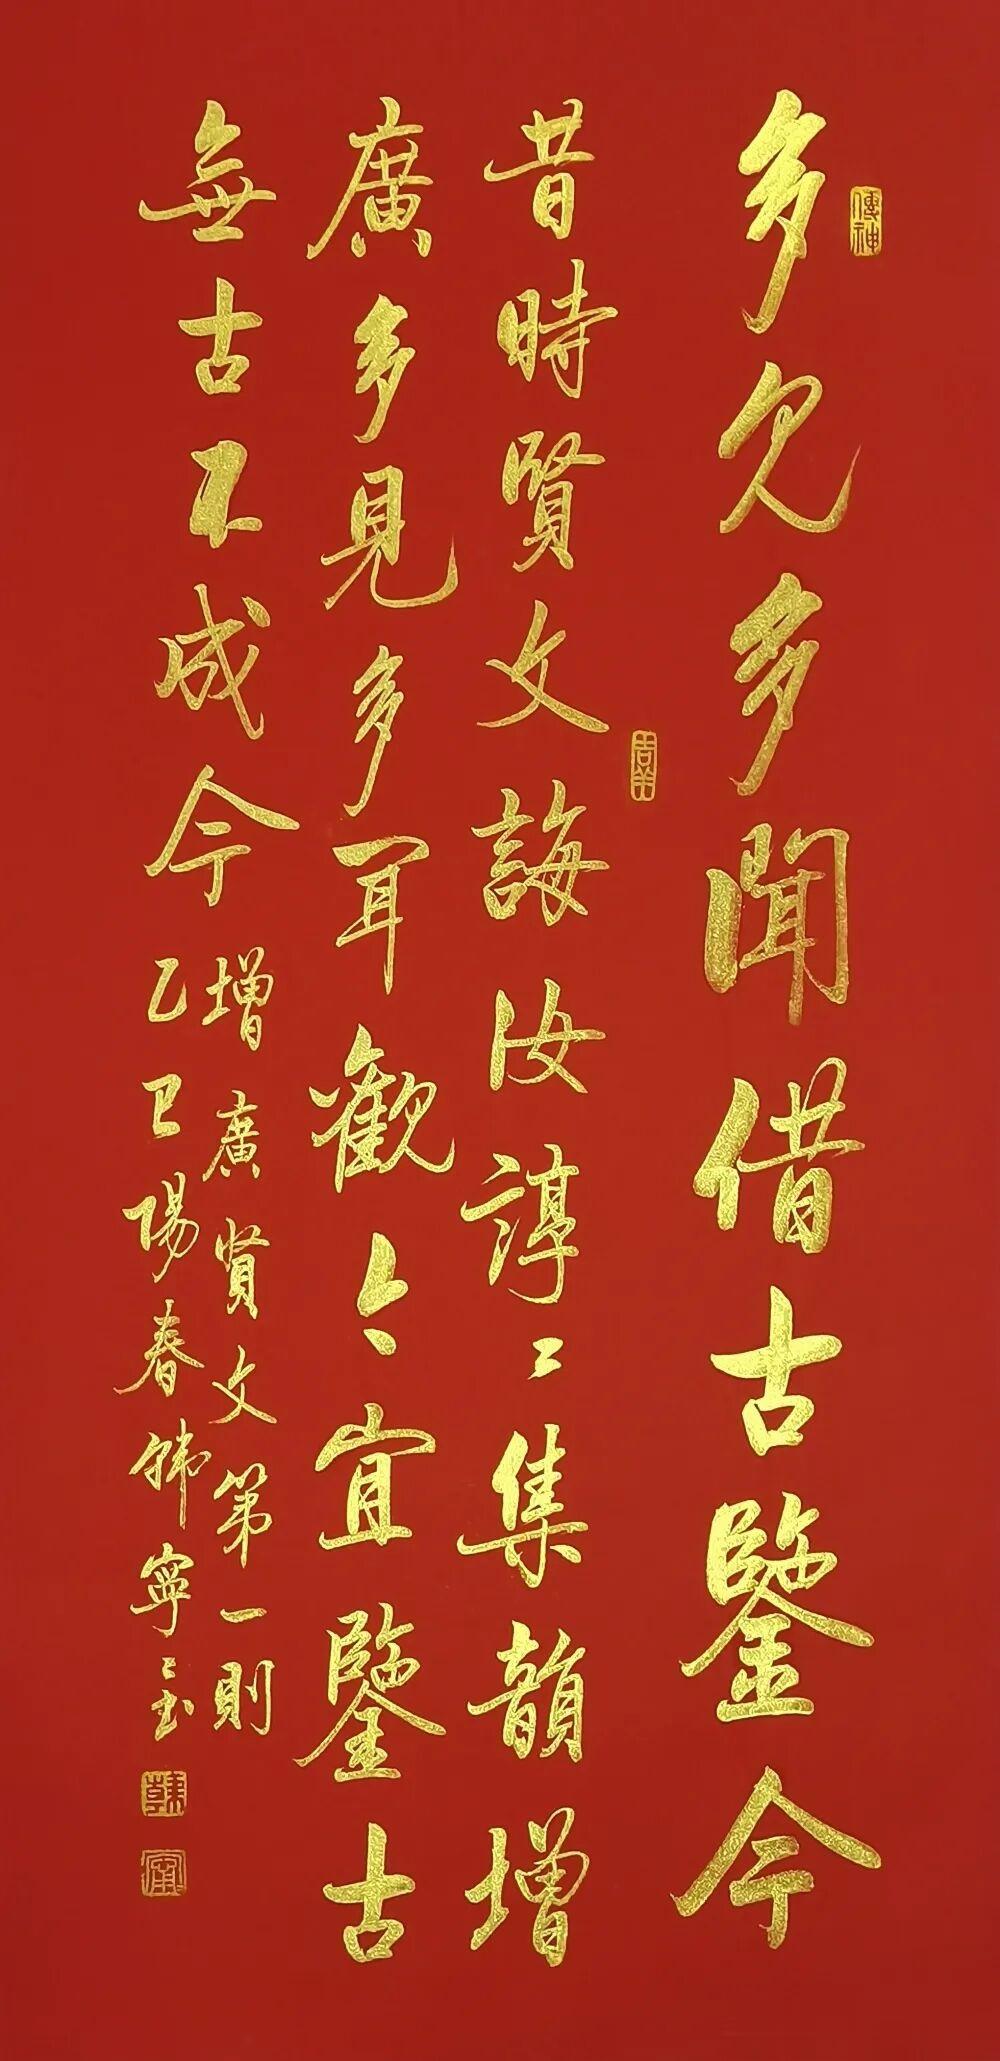 傳神
多見多聞借古鑒今
吉羊
昔時賢文誨汝諄〻集韻增
廣多見多聞觀今宜鑒古
無古不成今
增廣賢文第一則
乙巳陽春韩寧〻书
韓
寧